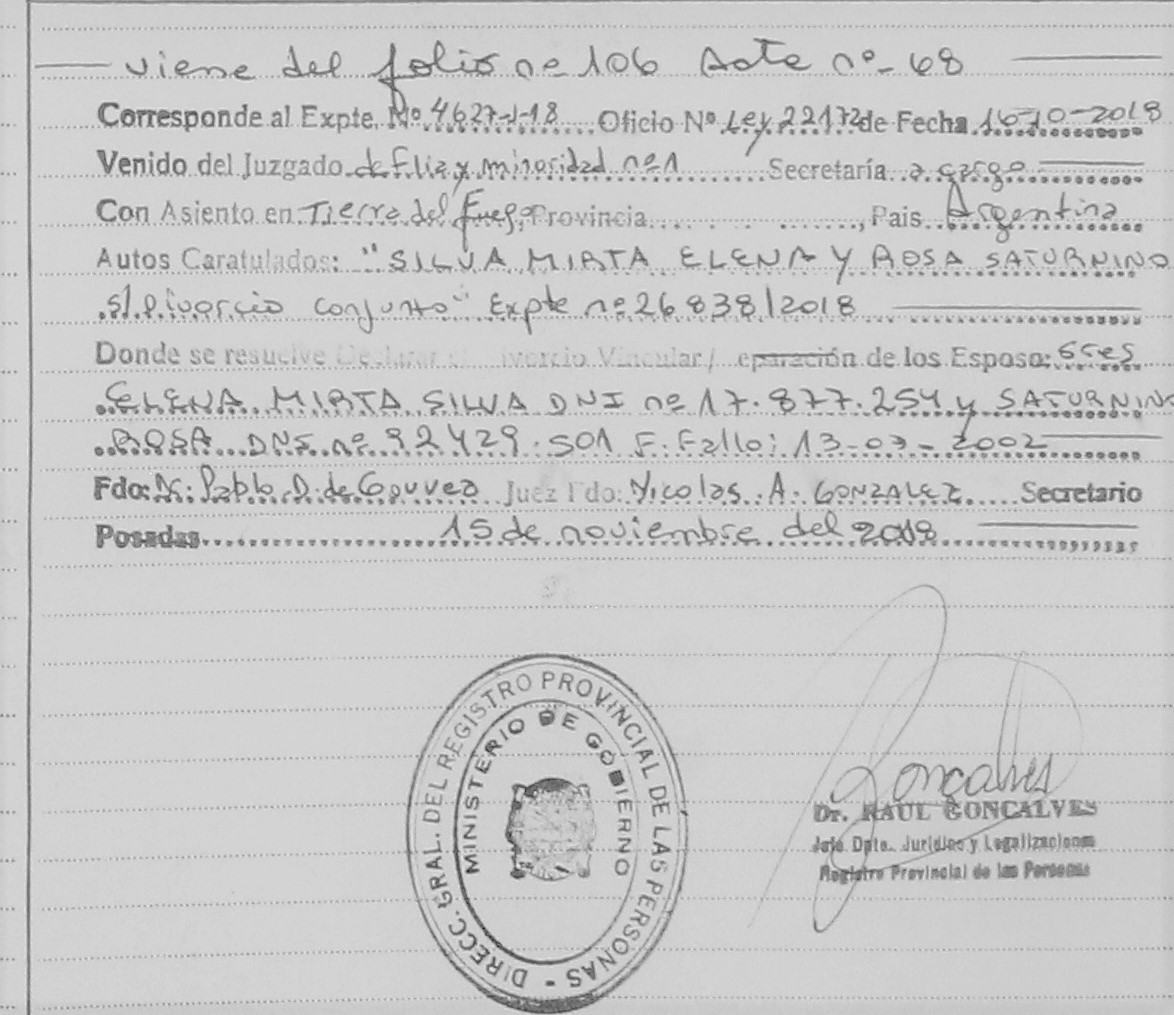 viene del folio nº 106 Acta nº 68
Corresponde al Expte. Nº 4627-J-18 Oficio Nº Ley 22172 de Fecha 16-10-2018
Venido del Juzgado de Flia y minoridad nº 1 Secretaría a cargo
Con Asiento en Tierra del Fuego Provincia , Pais Argentina
Autos Caratulados: "SILVA MIRTA ELENA Y ROSA SATURNINO
s/ Divorcio conjunto" Expte nº 26838/2018
Donde se resuelve Declarar el ivorcio Vincular/ eparación de los Esposos: Sres
ELENA MIRTA SILVA DNI nº 17.877.254 y SATURNINO
ROSA DNI nº 92429.501 F. Fallo: 13-03-2002
Fdo: Dr. Pablo D. de Gouvea Juez Fdo: Nicolas A. GONZALEZ Secretario
Posadas 15 de noviembre del 2018
DIRECC. GRAL. DEL REGISTRO PROVINCIAL DE LAS PERSONAS -
MINISTERIO DE GOBIERNO
Goncalves
Dr. RAUL GONCALVES
Jefe Dpto. Jurídico y Legalizaciones
Registro Provincial de las Personas